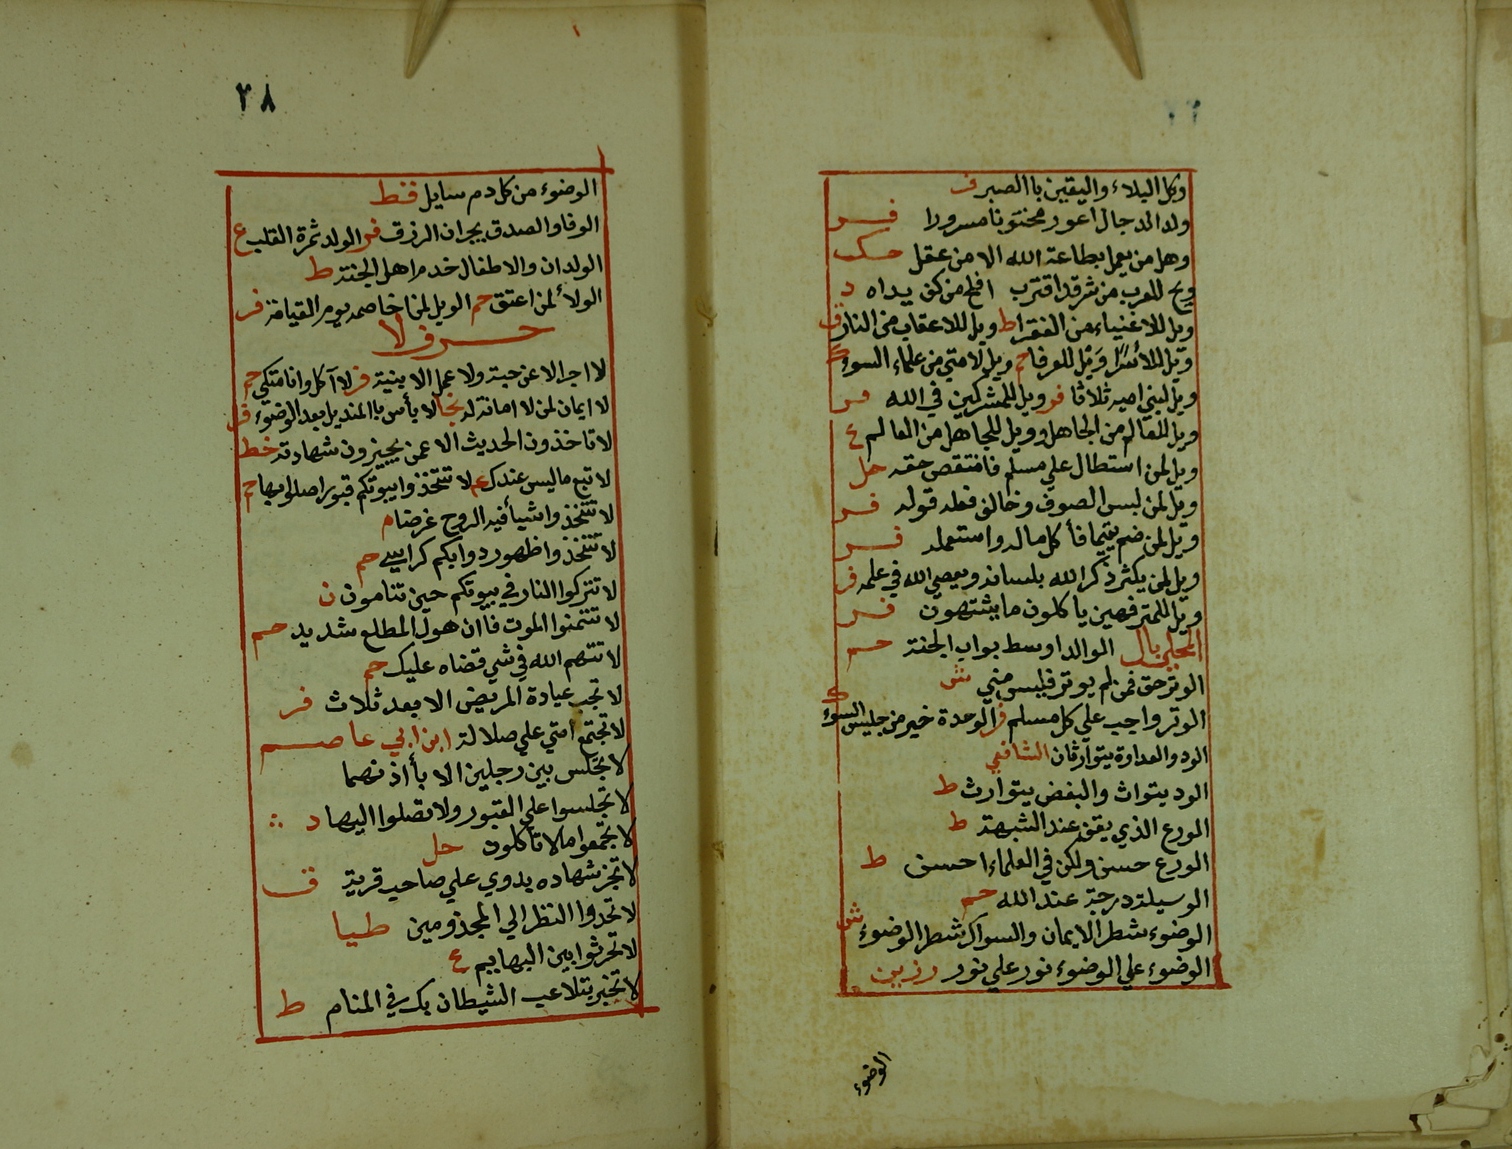 وكل البلاء واليقين باالصبر ف
ولد الدجال اعور مختونا مسرورا فر
وهل من يعمل بطاعة الله الا من عقل حك
ويح للعرب من شر قد اقترب افلح من كف يداه د
ويل للاغنياء من الفقرا ط ويل للاعقاب من النار ق
ويل للعرفا ح ويل لامتي من علماء السوء ك
ويل لبني اميه ثلاثا فر ويل للمشركين في الله فر
ويل للعالم من الجاهل وويل للجاهل من العالم ع
ويل لمن استطال علي مسلم فانتقص حقه حل
ويل لمن لبس الصوف وخالف فعله قوله فر
ويل لمن ضم يتيما فأكل ماله واستعمله فر
ويل لمن يكثر ذكر الله بلسانه ويعصي الله في علمه فر
ويل للمترفهين ياكلون ما يشتهون فر
المحلي بال الوالد اوسط بواب الجنة حم
الوتر حق فمن لم يوتر فليس مني ش
الوتر واجب علي كل مسلم فر الوحدة خير من جليس السوء ك
الود والعداوة يتوارثان الشافعي
الود يتواث والبغض يتوارث ط
الورع الذي يقف عند الشبهة ط
الورع حسن ولكن في العلماء احسن ط
الوسيلة درجة عند الله حم
الوضوء شطر الايمان والسواك شطر الوضوء ش
الوضوء علي الوضوء نور علي نور رزين
الوضوء
٢٨
الوضوء من كل دم سايل قط
الوفا والصدق يجران الرزق فر الولد ثمرة القلب ع
الولدان والاطفال خدم اهل الجنة ط
الولأ لمن اعتق حم الويل لمن اخاصمه يوم القيامة فر
حرف لا
لا اجر الا عن حبة ولا عمل الا بنية فر لا آكل وانا متكي حم
لا ايمان لمن لا امانة له نجا لا بأس باالمنديل بعد الوضوء فر
لا تاخذون الحديث الا عمن يجيزون شهادته خط
لا تبع ما ليس عندك عم لا تتخذوا بيوتكم قبورا صلو فيها حم
لا تتخذوا شيأ فيه الروح غرضا م
لا تتخذوا ظهور دوابكم كراسي حم
لا تتركوا النار في بيوتكم حين تنامون ن
لا تتمنوا الموت فاان هول المطلع شديد حم
لا تتهم الله في شي قضاه عليك حم
لا تجب عيادة المريض الا بعد ثلاث فر
لا تجتمع امتي علي ضلالة ابن ابي عاصم
لا تجلس بين رجلين الا بأذنهما
لا تجلسوا علي القبور ولا تصلوا اليها د
لا تجمعوا مالا تأكلون حل
لا تجز شهاده بدوي علي صاحب قرية ق
لا تحدوا النظر الي المجذومين طيا
لا تحرشوا بين البهايم ع
لا تخبر بتلاعب الشيطان بك في المنام ط